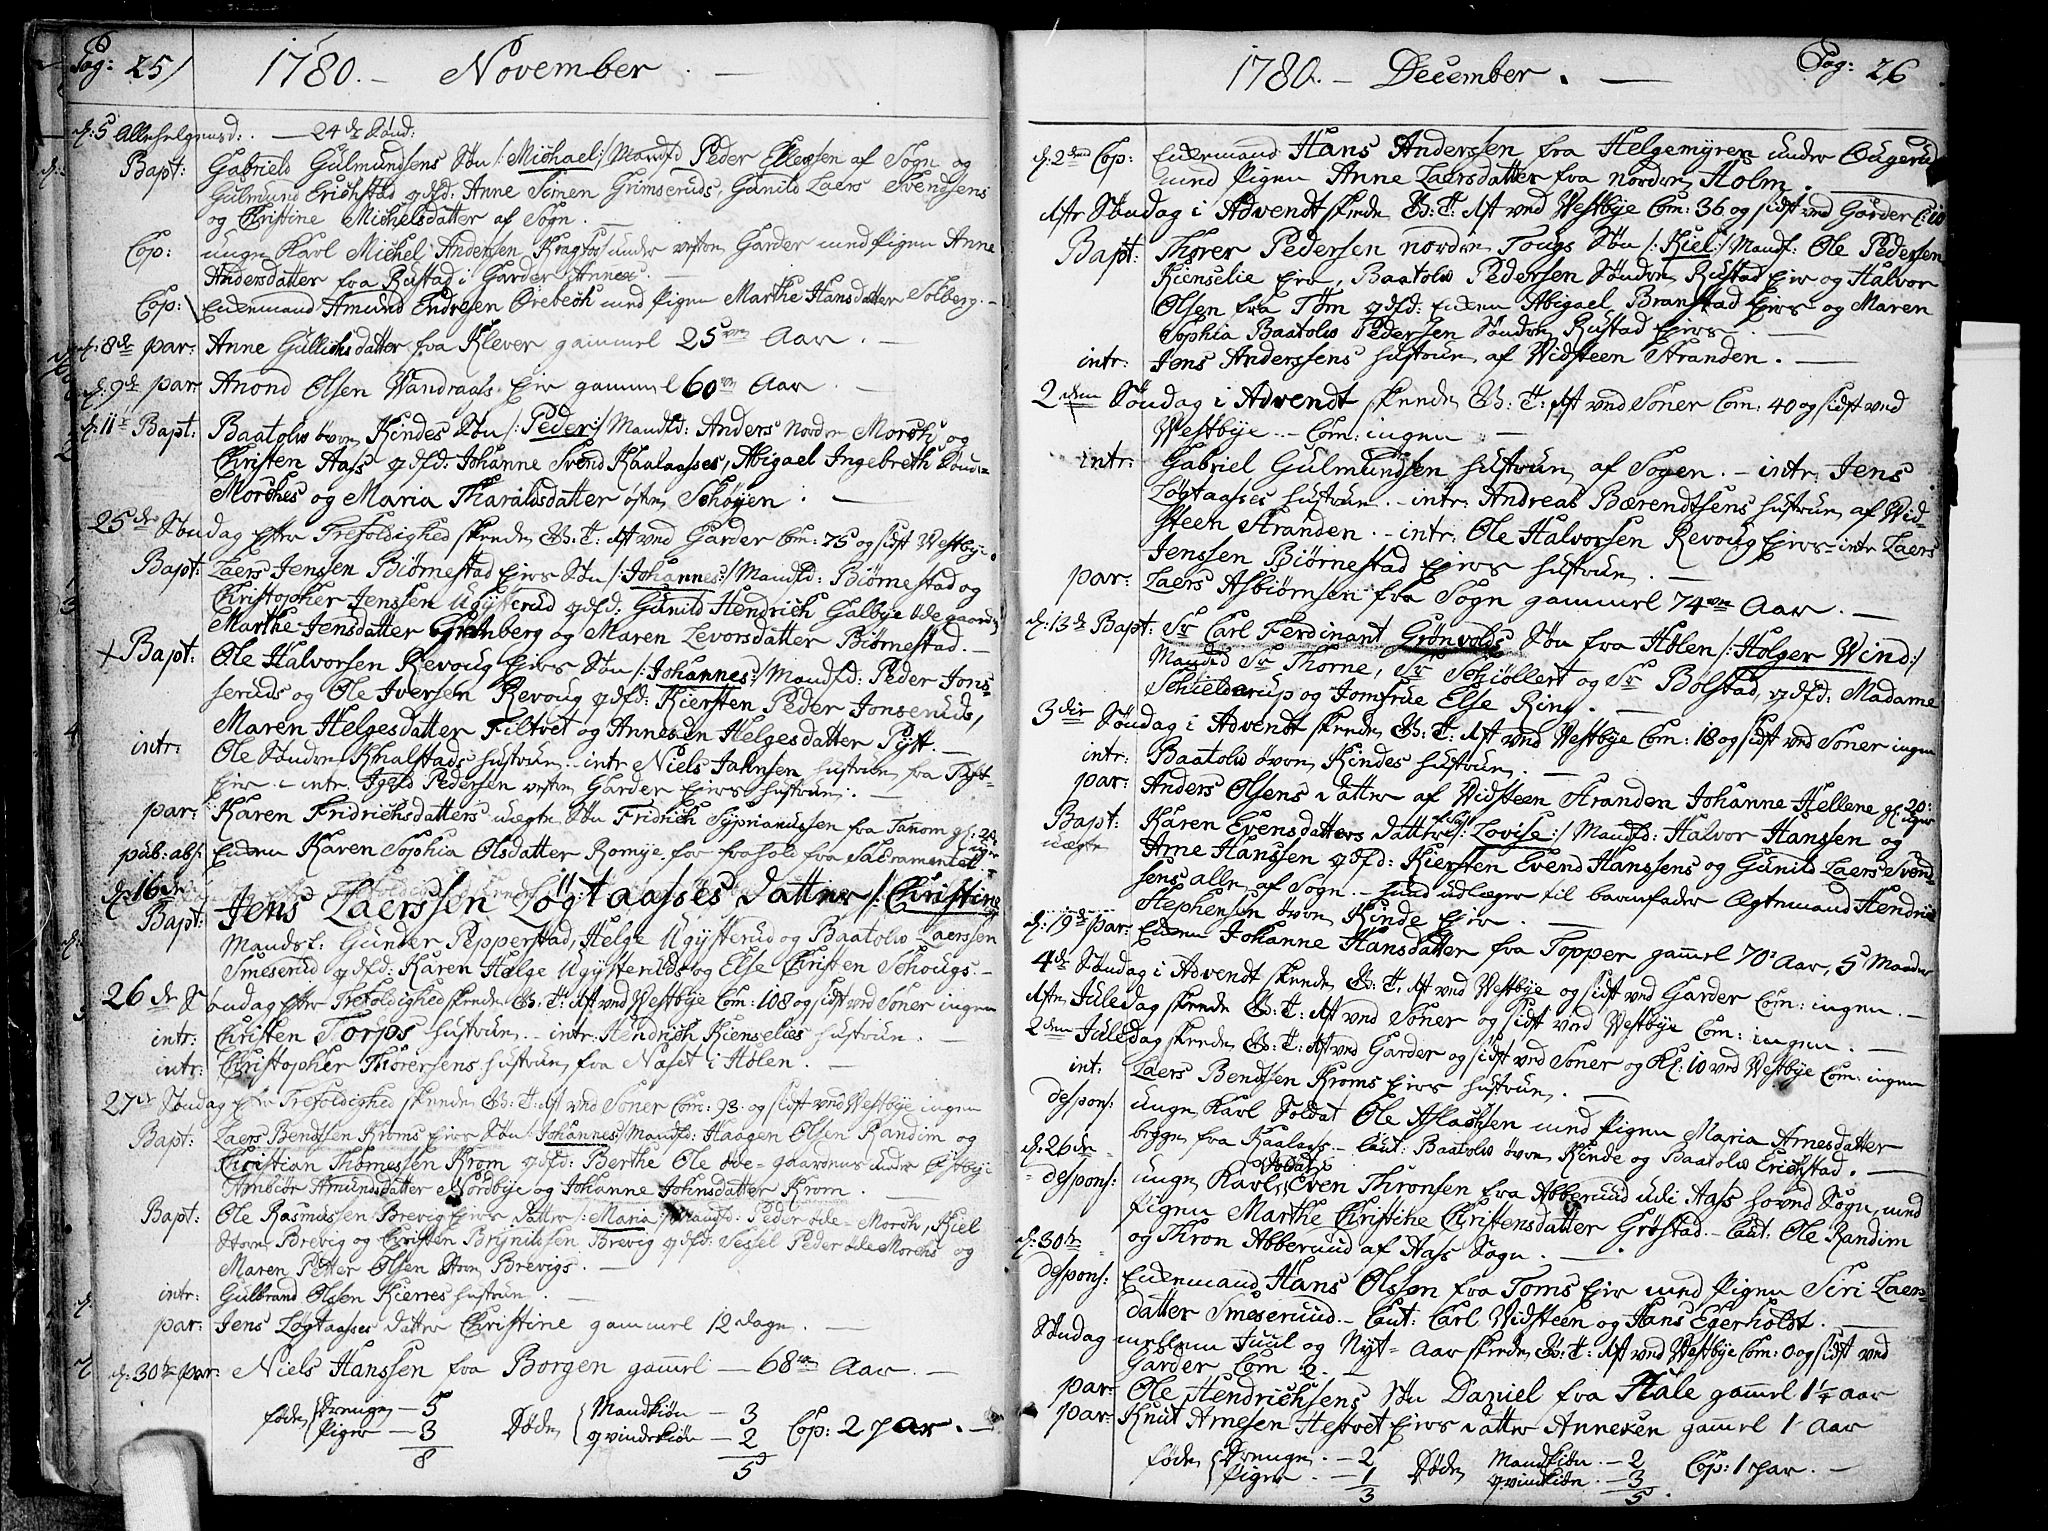 Pag: 25
1780. – November. –
d: 5 Allehelgensd: — 24de Sønd:
Bapt: Gabriels Gulmundsens Søn /: Michael :/ Mandfd Peder Ellevsen af Sogn og
Gulmund Erichstad qvfd: Anne Simen Grimseruds, Gunild Laers Svendsens
og Christine Michelsdatter af Sogn. —
Cop: unge Karl Michel Andersen Kragfos under vestre Garder med Pigen Anne
Andersdatter fra Rustad i Garder Annex. —
Cop: Enkemand Amund Endresen Ørebech med Pigen Marthe Hansdatter Solberg. –
d: 8de par: Anne Gullichsdatter fra Klever gammel 25 Aar. —
d: 9de par: Anond Olsen Vandraals Eie gammel 60 Aar —
d: 11te Bapt: Baatolw øvre Kindes Søn /: Peder :/ Mandfd: Anders Nordre Morch og
Christen Aass qvfd: Johanne Svend Kaalaasses, Abigael Ingebreth Sønd-
Morches og Maria Tharaldsdatter østre Schøyen. —
25de Søndag efter Trefoldighed skrede G: T: 1st ved Garder Com: 75 og sidst Vestbye.
Bapt: Laers Jenssen Biørnestad Eies Søn /: Johannes :/ Mandfd: Biørnestad og
Christopher Jenssen Ugysterud qvfd: Gunild Hendrich Galbye ødegaarden
Marthe Jensdatter Grinberg og Maren Levorsdatter Biørnestad. –
Bapt: Ole Halvorsen Revoug Eies Søn /: Johannes :/ Mandfd: Peder Jons-
seruds og Ole Iversen Revoug qvfd: Kiersten Peder Jonseruds,
Maren Helgesdatter Filtvet og Anneken Helgesdatter Pyst. —
intr: Ole Søndre Knalstads hustrue. – intr Niels Jahnsen hustrue fra Tyst-
Eie – intr. Iges Pedersen vestre Garder Eies hustrue. —
par: Karen Fridrichsdatters uægte Søn Fridrich Syprianussen fra Tanom gl: 20 uger
pub: abs: Enken Karen Sophia Olsdatter Romye for frahold fra Sacramentet
d: 16de
Bapt: Jens Laerssen Løgtaasses datter /: Christine
Mandsf: Gunder Pepperstad, Helge Ugysterud og Baatolw Laerssen
Smeserud qvfd: Karen Helge Ugysteruds og Else Christen Schougs. –
26de Søndag efter Trefoldighed skrede G: T: 1st ved Vestbye Com: 108 og sidst ved Soner ingen
intr: Christen Torps hustrue. – intr: Hendrich Kienselies hustrue. —
intr: Christopher Thorersens hustrue fra Næset i Holen. —
27de Søndag efter Trefoldighed skrede G: T: 1st ved Soner Com: 93. og sidst ved Vestbye ingen
Bapt: Laers Bendtsen Kroms Eies Søn /: Johannes :/ Mandfd: Haagen Olsen Randim og
Christian Thomessen Krom qvfd: Berthe Ole øde-gaardens under Østbye
Ambiør Amundsdatter Nordbye og Johanne Johnsdatter Krom. —
Bapt: Ole Rasmussen Brevig Eies datter /: Maria :/ Mandfd: Peder øde-Morch, Kiel
Store Brevig og Christen Brynilssen Brevig qvfd: Sessel Peder øde Morchs og
Maren Petter Olsen Store Brevigs. —
intr: Gulbrand Olsen Kierres hustrue. —
par: Jens Løgtaasses datter Christine gammel 12 dage. —
d: 30te par: Niels Hanssen fra Borgen gaml – 68 Aar. —
føde Drenge – 5 Døde Mandkiøn – 3 Cop: 2 par. —
Piger – 3 qvindekiøn – 2
8 5
1780. – December. – Pag: 26
d: 2den Cop: Enkemand Hans Andersen fra Helgemyren under Ougerud
med Pigen Anne Laersdatter fra nordre Holm. —
1ste Søndag i Advendt skrede G: T: 1st ved Vestbye Com: 36 og sidst ved Garder C: 10
Bapt: Thorer Pedersen nordre Tougs Søn /: Kiel :/ Mandf: Ole Pedersen
Kienselie Eie, Baatolw Pedersen Søndre Rustad Eie og Halvor
Olsen fra Tøm qvfd: Enken Abigael Branstad Eies og Maren
Sophia Baatolw Pedersen Søndre Rustad Eies. —
intr: Jens Anderssens hustrue af Vidsteen Stranden. —
2den Søndag i Advendt skrede G: T: 1st ved Soner Com: 40 og sidst ved
Vestbye. – Com: ingen —
intr: Gabriel Gulmundsen hustrue af Sogen. – intr: Jens
Løgtaasses hustrue. – intr: Andreas Bærendtsens hustrue af Vid-
steen Stranden. – intr: Ole Halvorsen Revoug Eies – intr Laers
Jenssen Biørnestad Eies hustrue. —
par: Laers Asbiørnsen fra Sogn gammel 74 Aar. —
d: 13de Bapt: Sr Carl Ferdinant Grønvolds Søn fra Holen /: Holger Wind :/
Mandfd Sr Thorne, Sr Schiøllert og Sr Bolstad, qvfd: Madame
Schielderup og Jomfrue Else Ring. —
3die Søndag i Advendt skrede G: T: 1st ved Vestbye Com: 18 og sidst ved Soner ingen
intr: Baatolw øvre Kindes hustrue. —
par: Anders Olsens datter af Vidsteen Stranden Johanne Hellene gl: 20: uger
Bapt: Karen Evensdatters datter /: Lovise :/ Mandfd: Halvor Hanssen og
uægte Arne Hanssen qvfd: Kiersten Evend Hanssens og Gunild Laers Svend-
sens alle af Sogn. – hun udlægger til barnefader Agtemand Hendrich
Stephensen øvre Kinde Eie. —
d: 19de par: Enken Johanne Hansdatter fra Topper gaml 70 Aar, 5 Maader
4de Søndag i Advendt skrede G: T: 1st ved Vestbye og sidst ved Garder Com: ingen. –
1ste Juledag skrede G: T: 1st ved Soner og sidst ved Vestbye Com: ingen. –
2den Juledag skrede G: T: 1st ved Garder og sidst ved Soner og Kl: 10 ved Vestbye Com: ingen
int: Laers Bendtsen Kroms Eies hustrue. —
despons: unge Karl Soldat Ole Aslachsen med Pigen Maria Arnesdatter
d: 26de begge fra Kaalaas – Caut: Baatolw øvre Kinde og Baatolw Erichstad. —
despons: unge Karl Soldat Even Thronsen fra Abberuud udi Aass hoved Sogn, med
Pigen Marthe Christine Christensdatter Grøstad. – Caut: Ole Randim
d: 30te og Thron Abberuud af Aass Sogn. —
despons: Enkemand Hans Olsson fra Toms Eie med Pigen Siri Laers-
datter Smeseruud. – Caut: Carl Vidsteen og Hans Egerholdt. —
Søndag mellem Juul og Nyt-Aar skrede G: T: 1st ved Vestbye Com: 0 og sidst ved
Garder Com 2. —
par: Ole Hendrichsens Søn Daniel fra Hale gaml 1¼ aar
par: Knut Arnesen Hestvet Eies datter Anneken gaml 1 Aar
føde Drenge. – 2 Døde Mandkiøn. – 2 Cop: 1 par. —
Piger – 1 qvindkiøn. – 3
3 5.